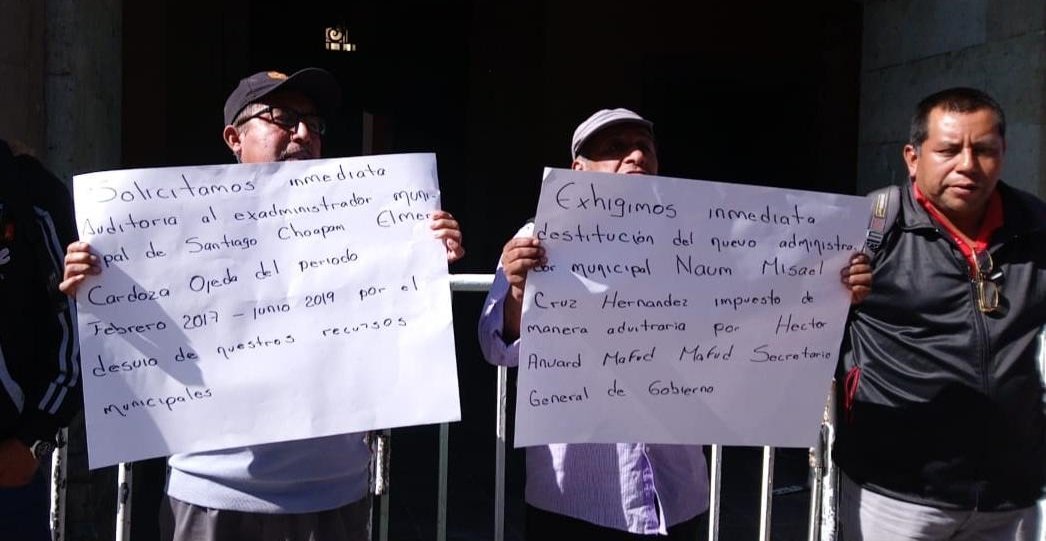 Solicitamos inmediata
Auditoria al exadministrador muni-
pal de Santiago Choapam Elmer
Cardoza Ojeda del periodo
Febrero 2017 - Junio 2019 por el
desvio de nuestros recursos
municipales
Exhigimos inmediata
destitución del nuevo administra
dor municipal Naum Misael
Cruz Hernandez impuesto de
manera advitraria por Hector
Anuard Mafud Mafud Secretario
General de Gobierno